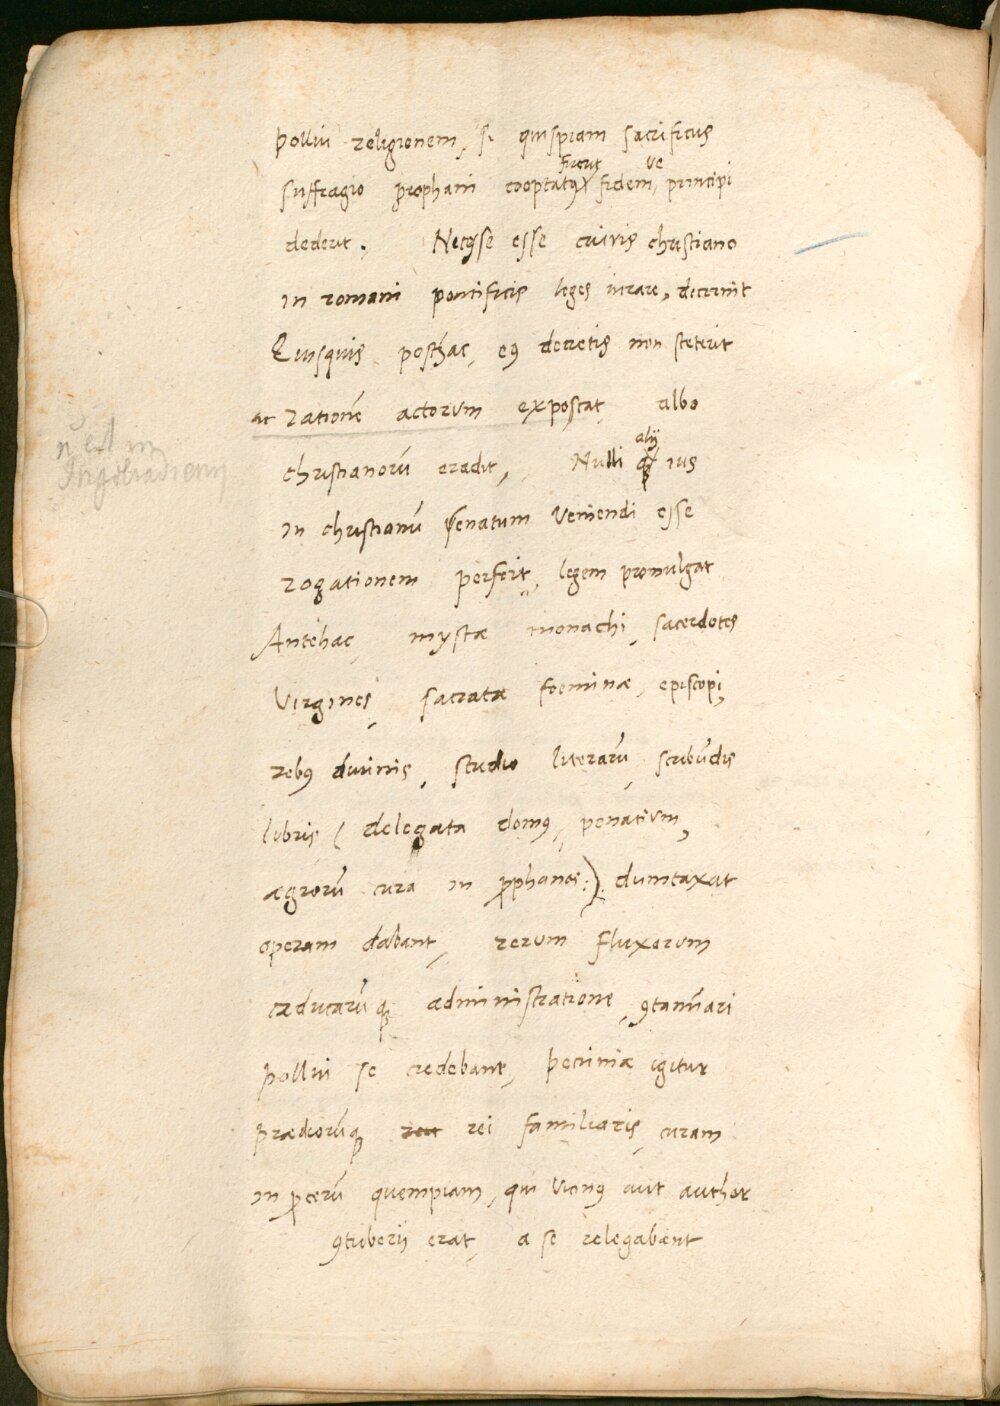 pollui religionem, si quispiam sacrificus
fuerit ve
suffragio prophani cooptatus fidem, principi
dederit. Necesse esse cuivis christiano
in romani pontificis leges iurare, decernit
Quisquis posthac, eꝰ decretis non steterit
ac rationē actorum exposcat, albo
christianorū eradit, Nulli ius
alij
in christianū senatum veniendi esse
rogationem perfert, legem promulgat
Antehac, mystæ monachi, sacerdotes
Virgines, sacratæ foeminæ, episcopi,
rebꝰ divinis, studio literarū, scribūdis
libris, ( delegata domꝰ, penatium,
ægrorū cura in ꝓphanos:) dumtaxat
operam dabant, rerum fluxarum
caducarūq; administratione, ꝯtaminari
pollui se credebant, pecuniæ igitur
prædiorūq; rei familiaris, curam
in ꝓcerū quempiam, qui vicinꝰ aut author
ꝯtubernij erat, a se relegabant
n̄ est in